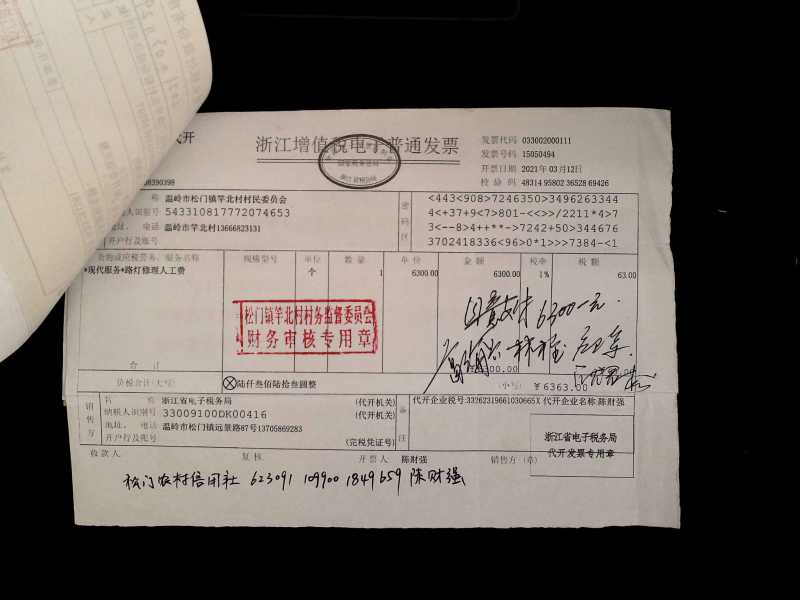 代开
浙江增值税电子普通发票
发票代码 033002000111
发票号码 15050494
开票日期 2021年03月12日
校验码 48314 95802 36528 69426
98390398
名称 温岭市松门镇竿北村村民委员会
人识别号 543310817772074653
地址、电话 温岭市竿北村13666823131
开户行及账号
密码区
<443<908>7246350>3496263344
4<+37+9<7>801-<<>>/2211*4>7
3<--8>4++**->7242+50>344676
3702418336<96>0*1>>>7384-<1
货物或应税劳务、服务名称 规格型号 单位 数量 单价 金额 税率 税额
*现代服务*路灯修理人工费 个 1 6300.00 6300.00 1% 63.00
松门镇竿北村村务监督委员会
财务审核专用章
6300元
合计 ¥6300.00
价税合计(大写) ⊗陆仟叁佰陆拾叁圆整 (小写) ¥6363.00
销售方
名称 浙江省电子税务局 (代开机关)
纳税人识别号 33009100DK00416 (代开机关)
地址、电话 温岭市松门镇远景路87号13705869283
开户行及账号 (完税凭证号)
备注
代开企业税号:33262319661030665X 代开企业名称:陈财强
浙江省电子税务局
代开发票专用章
收款人 复核 开票人 陈财强 销售方(章)
松门农村信用社 623091 109900 1849659 陈财强